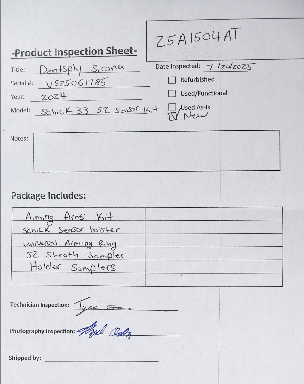 25A1504AT
-Product Inspection Sheet-
Title: Dentsply Sirona
Date Inspected:
Serial#: US75061785
Refurbished
Year: 2024
Used/Functional
Model: Schick 33 S2 Sensor Kit
Used As-Is
New
Notes:
Package Includes:
Aiming Arms Kit
Schick Sensor holster
Universal Aiming Ring
S2 Sheath Sampler
Holder Samplers
Technician Inspection:
Photography Inspection:
Shipped by: